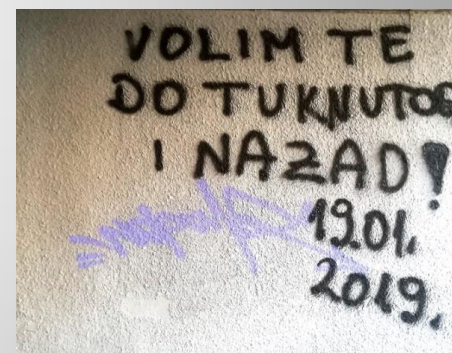 VOLIM TE
DO TUKNUTOG
I NAZAD!
19.01.
2019.